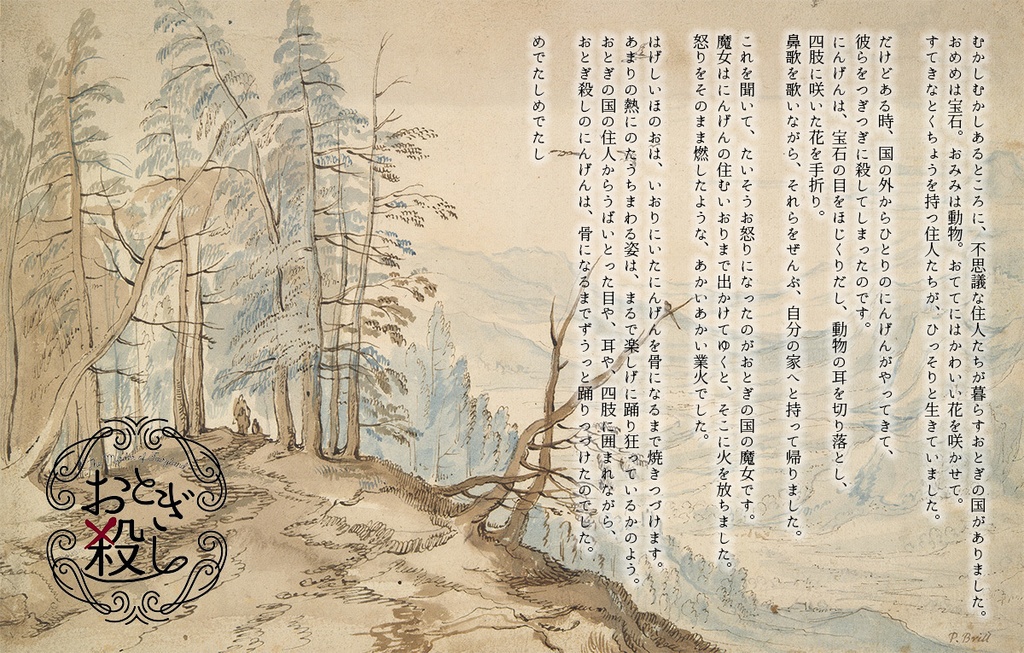 むかしむかしあるところに、不思議な住人たちが暮らすおとぎの国がありました。
おめめは宝石。おみみは動物。おててにはかわいい花を咲かせて。
すてきなとくちょうを持つ住人たちが、ひっそりと生きていました。
だけどある時、国の外からひとりのにんげんがやってきて、
彼らをつぎつぎに殺してしまったのです。
にんげんは、宝石の目をほじくりだし、動物の耳を切り落とし、
四肢に咲いた花を手折り。
鼻歌を歌いながら、それらをぜんぶ、自分の家へと持って帰りました。
これを聞いて、たいそうお怒りになったのがおとぎの国の魔女です。
魔女はにんげんの住むいおりまで出かけてゆくと、そこに火を放ちました。
怒りをそのまま燃したような、あかいあかい業火でした。
はげしいほのおは、いおりにいたにんげんを骨になるまで焼きつづけます。
あまりの熱にのたうちまわる姿は、まるで楽しげに踊り狂っているかのよう。
おとぎの国の住人からうばいとった目や、耳や、四肢に囲まれながら、
おとぎ殺しのにんげんは、骨になるまでずうっと踊りつづけたのでした。
めでたしめでたし
おとぎ
殺し
P. Brill